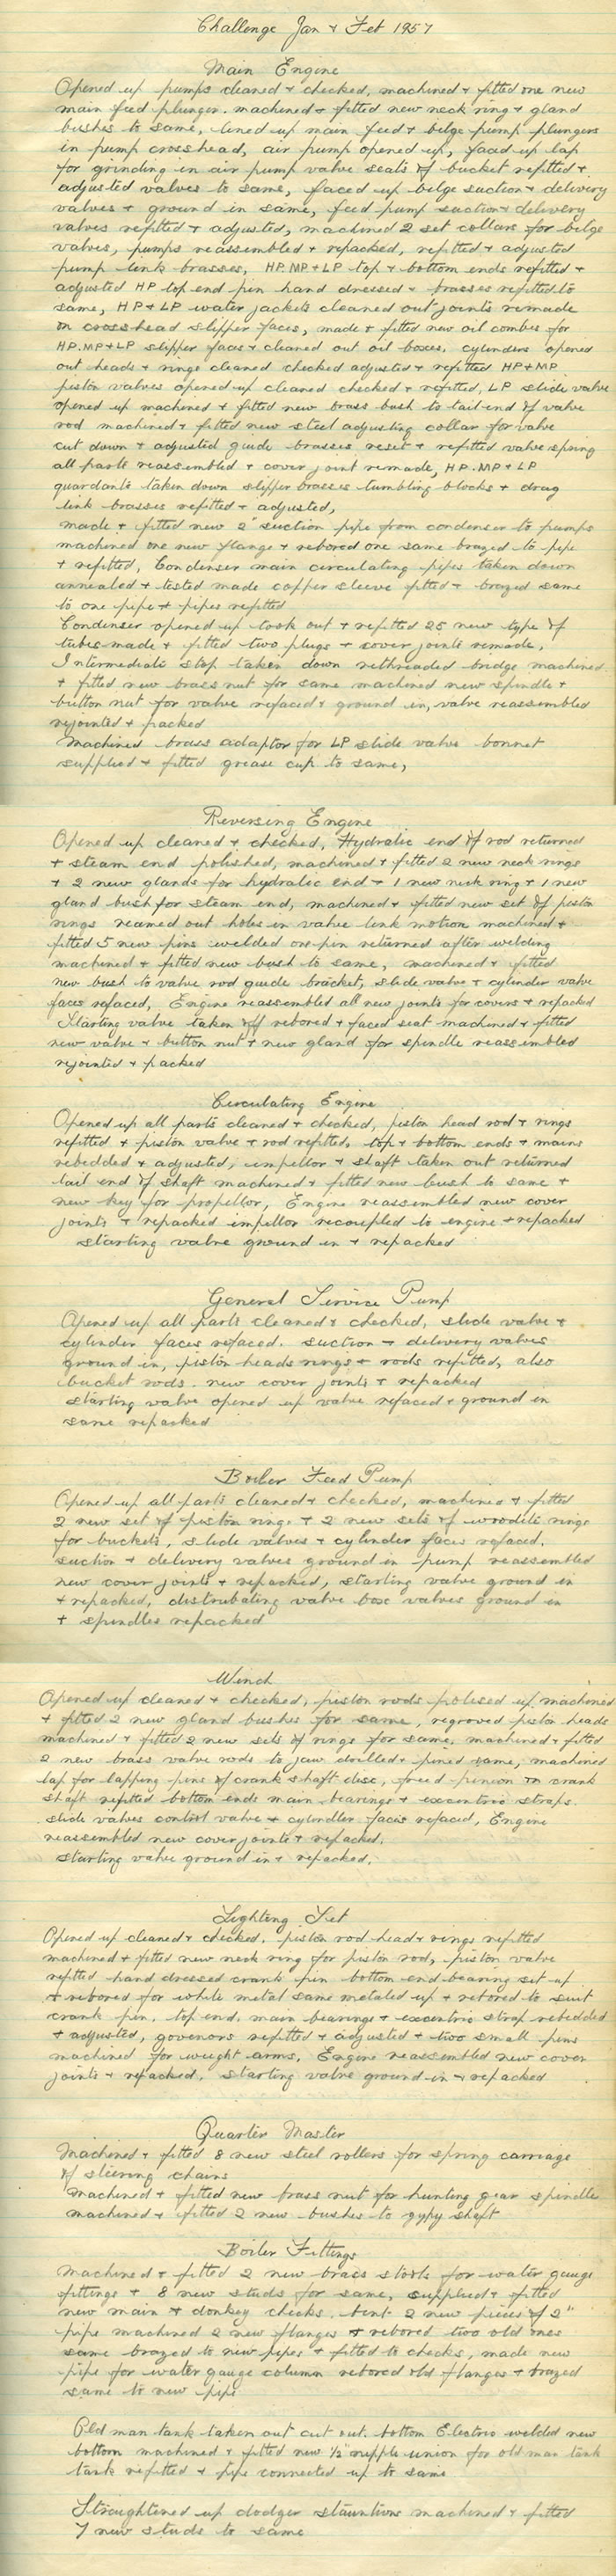 Challenge Jan + Feb 1957
Main Engine
Opened up pumps cleaned + checked, machined + fitted one new
main feed plunger. machined + fitted new neck ring + gland
bushes to same, lined up main feed + belge pump plungers
in pump crosshead, air pump opened up, faced up lap
for grinding in air pump valve seats of bucket refitted +
adjusted valves to same, faced up belge suction + delivery
valves + ground in same, feed pump suction + delivery
valves refitted + adjusted, machined 2 set collars for belge
valves, pumps reassembled + repacked, refitted + adjusted
pump link brasses, HP.MP+LP top + bottom ends refitted +
adjusted HP top end pin hand dressed + brasses refitted to
same, HP+LP water jackets cleaned out joints remade
on crosshead slipper faces, made + fitted new oil combes for
HP.MP+LP slipper faces + cleaned out oil boxes, cylinders opened
out heads + rings cleaned checked adjusted + refitted HP+MP
piston valves opened up cleaned checked + refitted, LP slide valve
opened up machined + fitted new brass bush to tail end of valve
rod machined + fitted new steel adjusting collar for valve
cut down + adjusted guide brasses reset + refitted valve spring
all parts reassembled + cover joint remade, HP.MP+LP
quardants taken down slipper brasses tumbling blocks + drag
link brasses refitted + adjusted,
made + fitted new 2" suction pipe from condenser to pumps
machined one new flange + rebored one same brazed to pipe
+ refitted, Condenser main circulating pipes taken down
annealed + tested made copper sleeve fitted + brazed same
to one pipe + pipes refitted
Condenser opened up took out + refitted 25 new type of
tubes made + fitted two plugs + cover joints remade,
Intermediate stop taken down rethreaded bridge machined
+ fitted new brass nut for same machined new spindle +
button nut for valve refaced + ground in, valve reassembled
rejointed + packed
Machined brass adaptor for LP slide valve bonnet
supplied + fitted grease cup to same,
Reversing Engine
Opened up cleaned + checked, Hydralic end of rod returned
+ steam end polished, machined + fitted 2 new neck rings
+ 2 new glands for hydralic end + 1 new neck ring + 1 new
gland bush for steam end, machined + fitted new set of piston
rings reamed out holes in valve link motion machined +
fitted 5 new pins welded one pin returned after welding
machined + fitted new bush to same, machined + fitted
new bush to valve rod guide bracket, slide valve + cylinder valve
faces refaced, Engine reassembled all new joints for covers + repacked
Starting valve taken off rebored + faced seat machined + fitted
new valve + button nut + new gland for spindle reassembled
rejointed + packed
Circulating Engine
Opened up all parts cleaned + checked, piston head rod + rings
refitted + piston valve + rod refitted, top + bottom ends + mains
rebedded + adjusted, impellor + shaft taken out returned
tail end of shaft machined + fitted new bush to same +
new key for propellor, Engine reassembled new cover
joints + repacked impellor recoupled to engine + repacked
starting valve ground in + repacked
General Service Pump
Opened up all parts cleaned + checked, slide valve +
cylinder faces refaced. suction + delivery valves
ground in, piston heads rings + rods refitted, also
bucket rods. new cover joints + repacked
starting valve opened up valve refaced + ground in
same repacked
Boiler Feed Pump
Opened up all parts cleaned + checked, machined + fitted
2 new set of piston rings + 2 new sets of wrodite rings
for buckets, slide valves + cylinder faces refaced.
suction + delivery valves ground in pump reassembled
new cover joints + repacked, starting valve ground in
+ repacked, distrubating valve box valves ground in
+ spindles repacked
Winch
Opened up cleaned + checked, piston rods polised up, machined
+ fitted 2 new gland bushes for same, regroved piston heads
machined + fitted 2 new sets of rings for same, machined + fitted
2 new brass valve rods to jaw drilled + pined same, machined
lap for lapping pins of crank shaft disc, freed pinion on crank
shaft refitted bottom ends main bearings + excentric straps.
slide valves control valve + cylindler faces refaced, Engine
reassembled new cover joints + repacked.
starting valve ground in + repacked.
Lighting Set
Opened up cleaned + checked. piston rod head + rings refitted
machined + fitted new neck ring for piston rod, piston valve
refitted hand dressed crank pin bottom end bearing set up
+ rebored for white metal same metaled up + rebored to suit
crank pin. top end. main bearings + excentric strap rebedded
+ adjusted, govenors refitted + adjusted + two small pins
machined for weight arms, Engine reassembled new cover
joints + repacked. starting valve ground in + repacked
Quarter Master
Machined + fitted 8 new steel rollers for spring carriage
of steering chains
Machined + fitted new brass nut for hunting gear spindle
machined + fitted 2 new bushes to gypy shaft
Boiler Fittings
Machined + fitted 2 new brass for water gauge
fittings + 8 new studs for same, supplied + fitted
new main + donkey checks. bent 2 new pieces of 2"
pipe machined 2 new flanges + rebored two old ones
same brazed to new pipes + fitted to checks, made new
pipe for water gauge column rebored old flanges + brazed
same to new pipe
Old man tank taken out cut out. bottom Electric welded new
bottom machined + fitted new ½" nipple union for old man tank
tank refitted + pipe connected up to same
Straightened up dodger stauntions machined + fitted
7 new studs to same